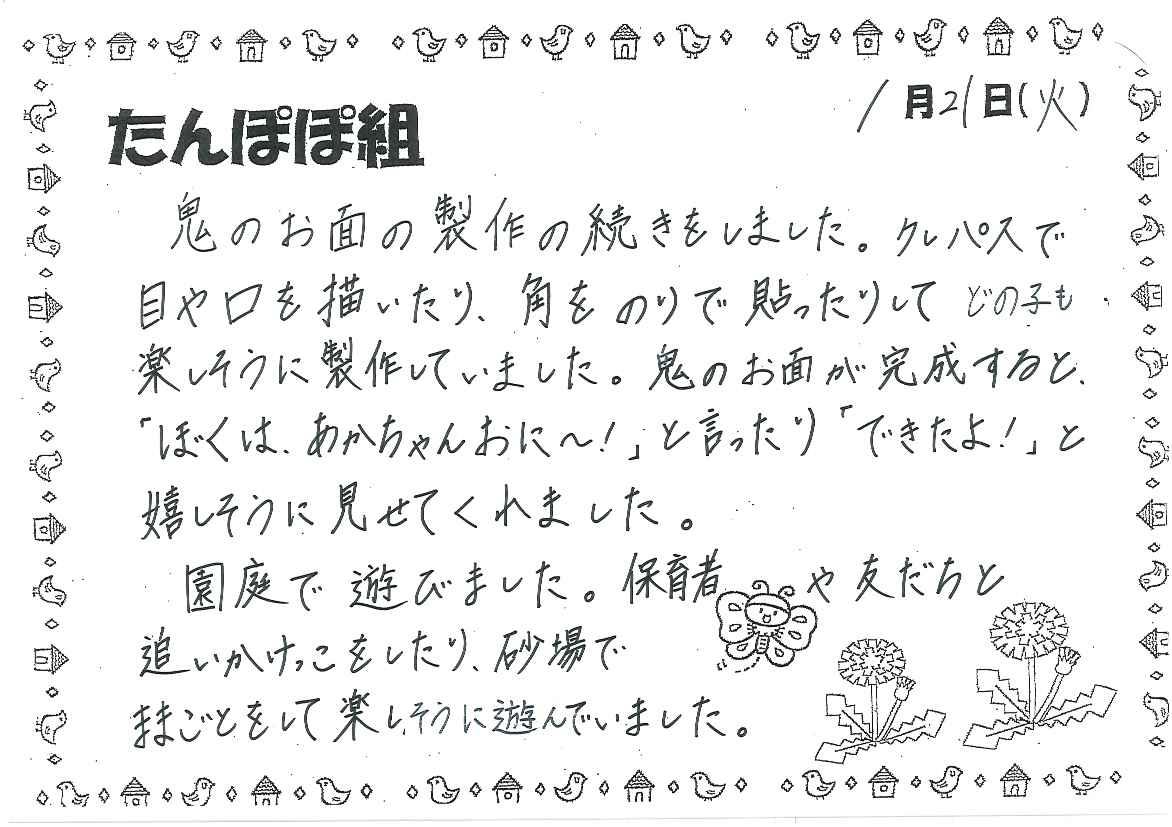 1月21日(火)
たんぽぽ組
鬼のお面の製作の続きをしました。クレパスで
目や口を描いたり、角をのりで貼ったりしてどの子も
楽しそうに製作していました。鬼のお面が完成すると、
「ぼくは、あかちゃんおに〜!」と言ったり「できたよ!」と
嬉しそうに見せてくれました。
園庭で遊びました。保育者や友だちと
追いかけっこをしたり、砂場で
ままごとをして楽しそうに遊んでいました。